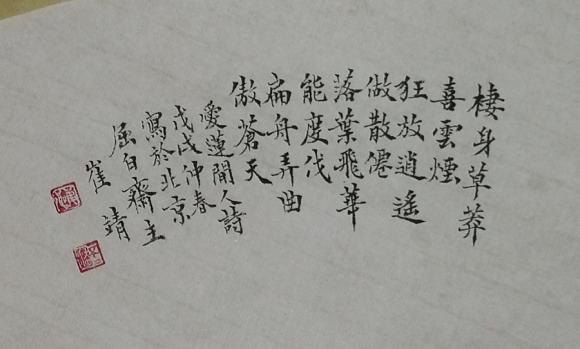 棲身草莽
喜雲煙
狂放逍遙
做散僊
落葉飛華
能度伐
扁舟弄曲
傲蒼天
愛蓮閒人詩
戊戌仲春
寫於北京
屈白齋主
崔靖